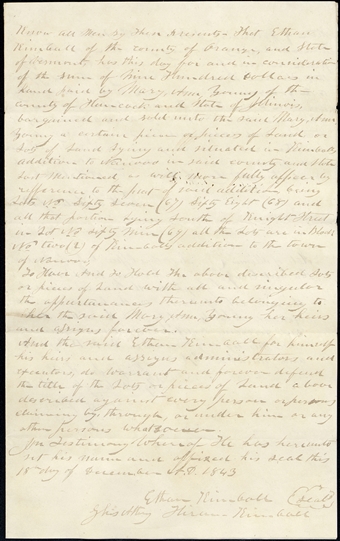 Know all Men by These Presents That Ethan
Kimball of the county of Orange, and State
of Vermont, has this day for and in consideration
of the sum of Nine Hundred Dollars in
hand paid by Mary Ann Young of the
county of Hancock and State of Illinois,
bargained and sold unto the said Mary Ann
Young a certain piece or pieces of Land or
Lots of Land lying and situated in Kimball's
addition to Nauvoo in said county and State
last mentioned as will more fully appear by
reference to the plat of said addition being
Lots No Sixty Seven (67) Sixty Eight (68) and
all that portion lying South of Wright Street
in Lot No Sixty Nine (69) all the Lots are in Block
No two (2) of Kimballs addition to the town
of Nauvoo.
To Have And To Hold the above described Lots
or pieces of Land with all and singular
the appurtenances thereunto belonging to
her the said Mary Ann Young her heirs
and assigns forever.
And the said Ethan Kimball for himself
his heirs and assigns administrators and
executors, do warrant and forever defend
the title of the Lots or pieces of Land above
described against every person or persons
claiming by, through, or under him or any
other persons whatsoever.
In Testimony Whereof He has hereunto
set his name and affixed his seal this
18 day of December A.D. 1843
Ethan Kimball (Seal)
by his Atty Hiram Kimball